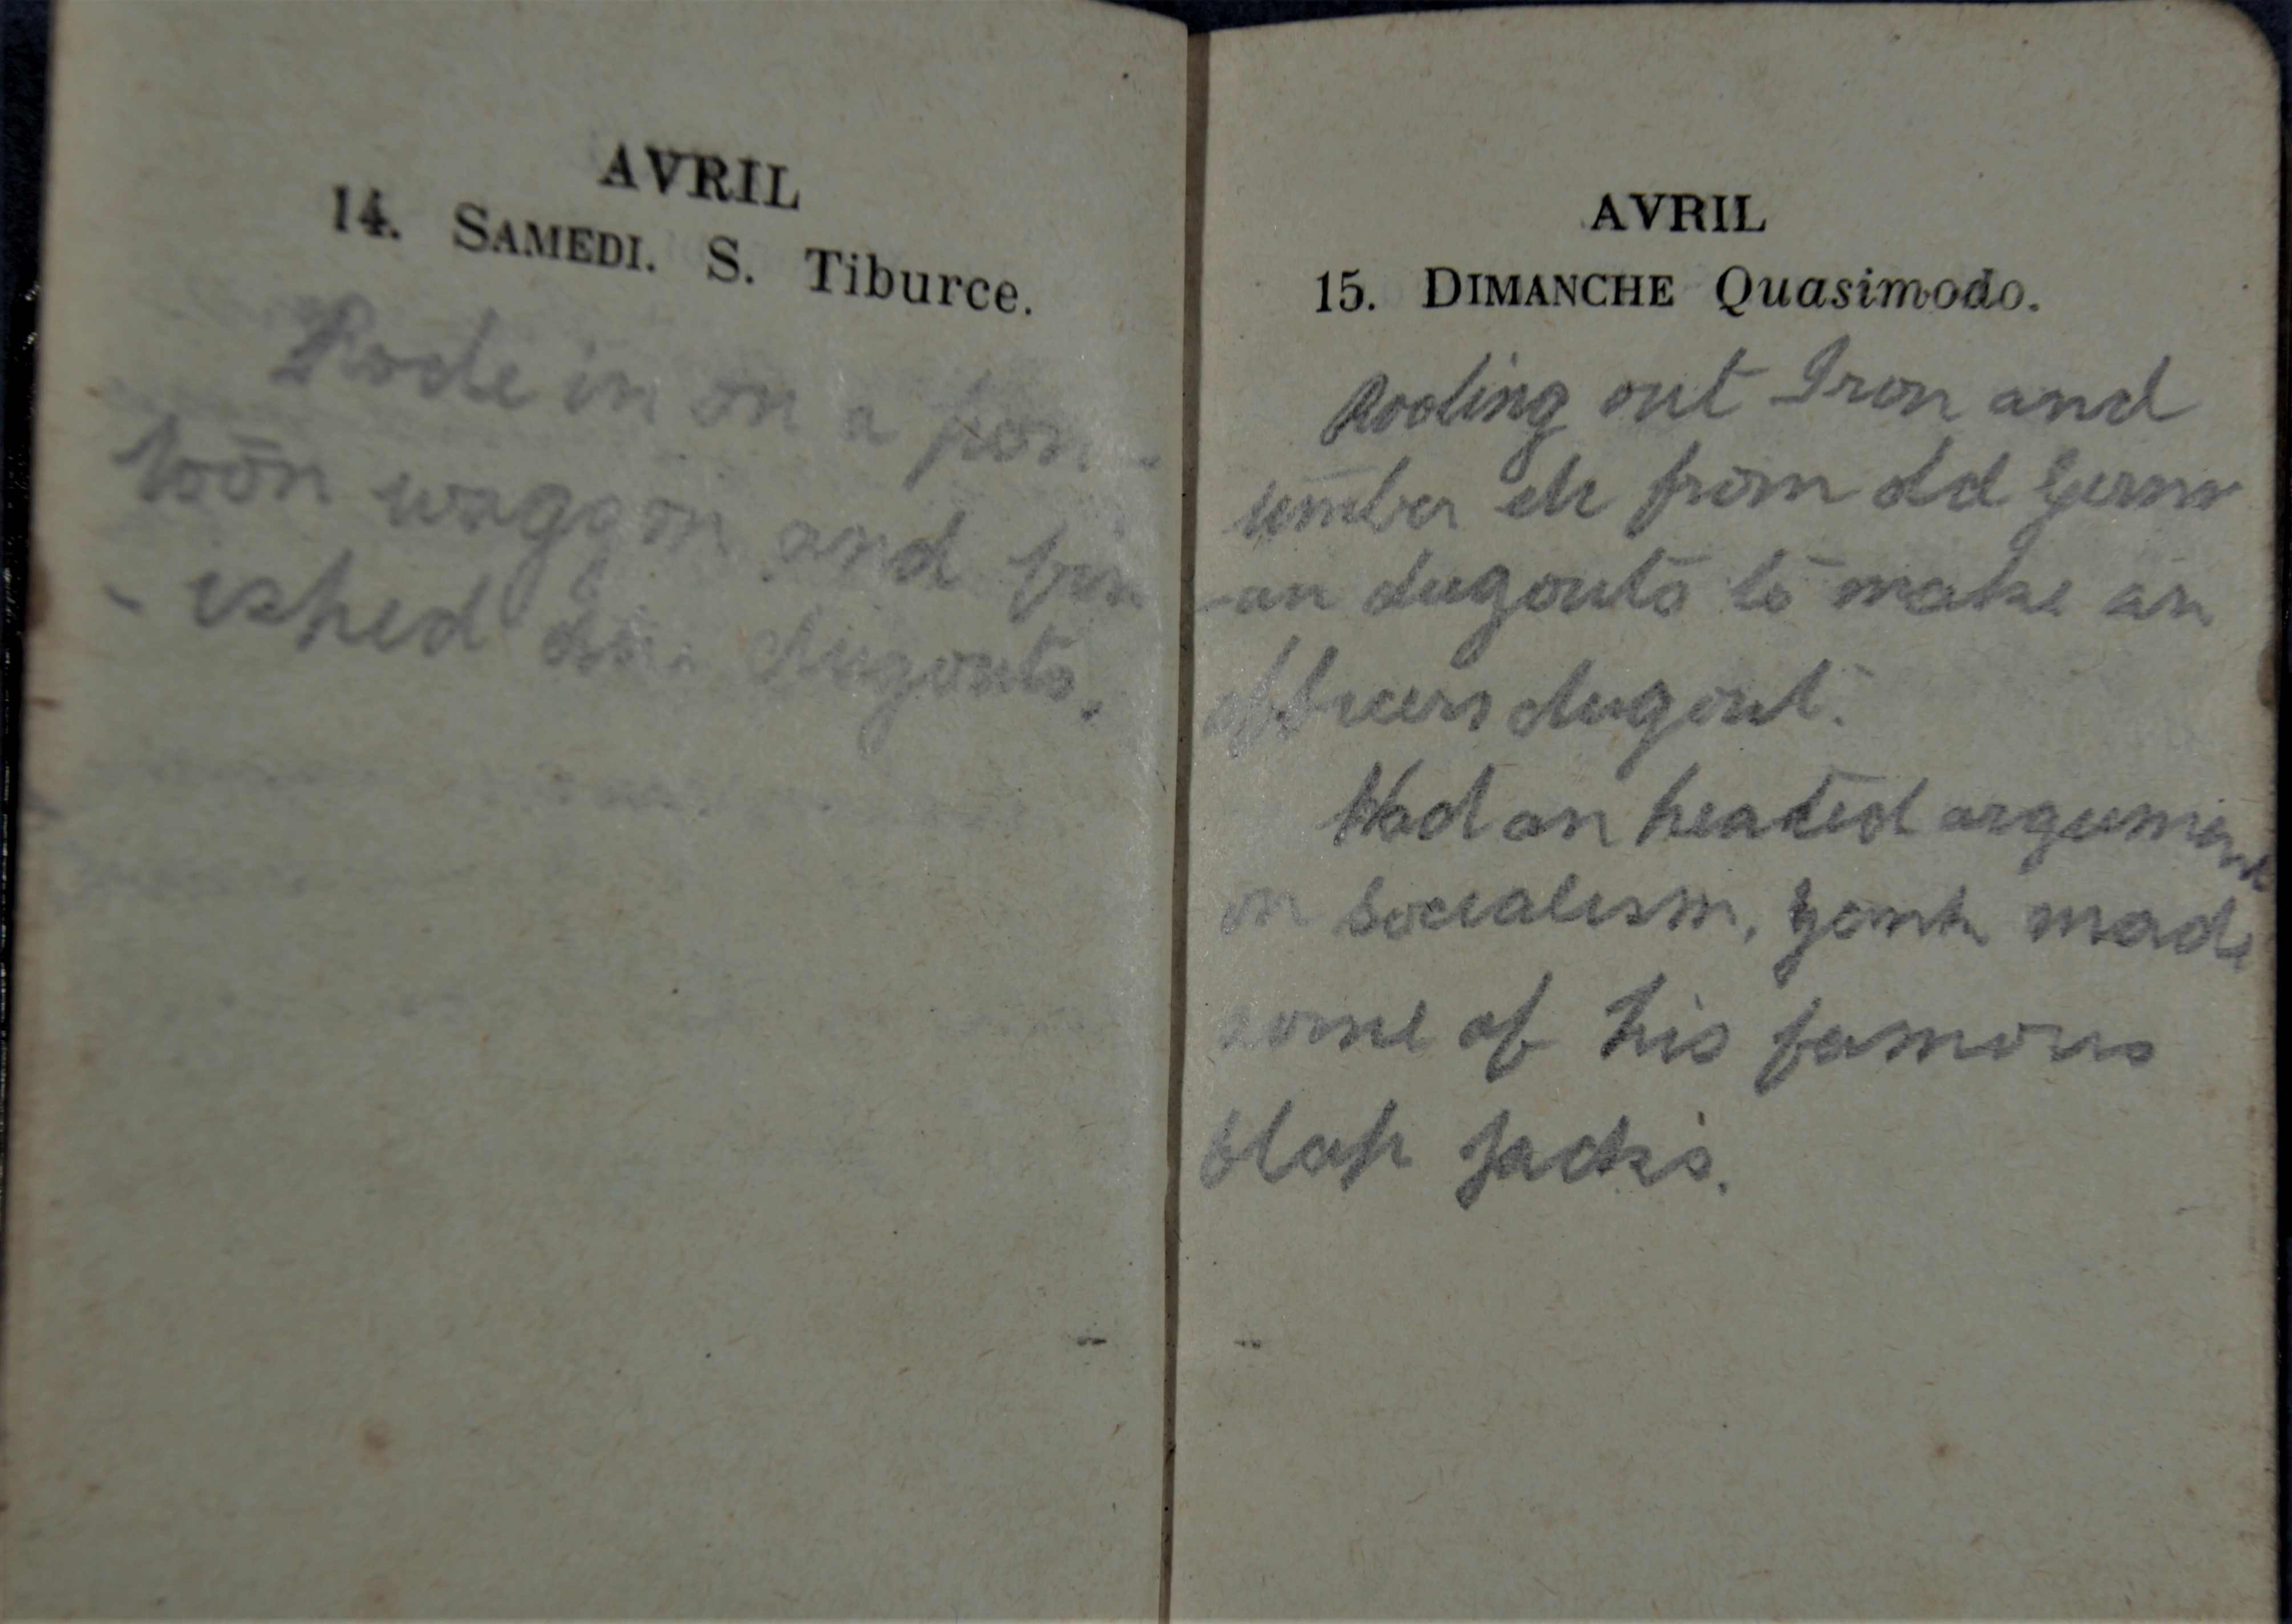 AVRIL
14. SAMEDI. S. Tiburce.
Rode in on a pon-
toon waggon and fin
- ished dugouts.
AVRIL
15. DIMANCHE Quasimodo.
Rooting out Iron and
timber etc from old Germ
-an dugouts to make an
officers dugout.
Had an heated argument
on Socialism, made
some of his famous
flap jacks.